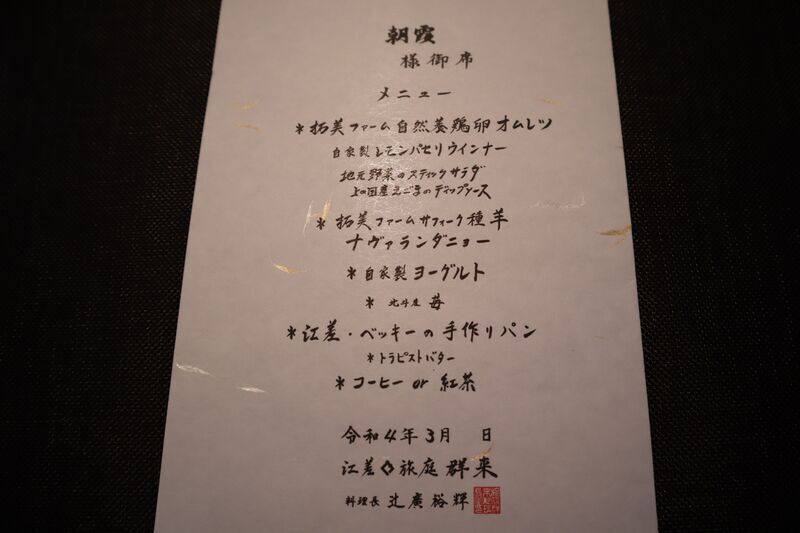 朝霞
様御席
メニュー
＊拓美ファーム自然養鶏卵オムレツ
自家製レモンパセリウインナー
地元野菜のスティックサラダ
上ノ国産えごまのディップソース
＊拓美ファームサフォーク種羊
ナヴァランダニョー
＊自家製ヨーグルト
＊北斗産 苺
＊江差・ベッキーの手作りパン
＊トラピストバター
＊コーヒー or 紅茶
令和4年3月 日
江差 旅庭 群来
料理長 辻廣裕輝